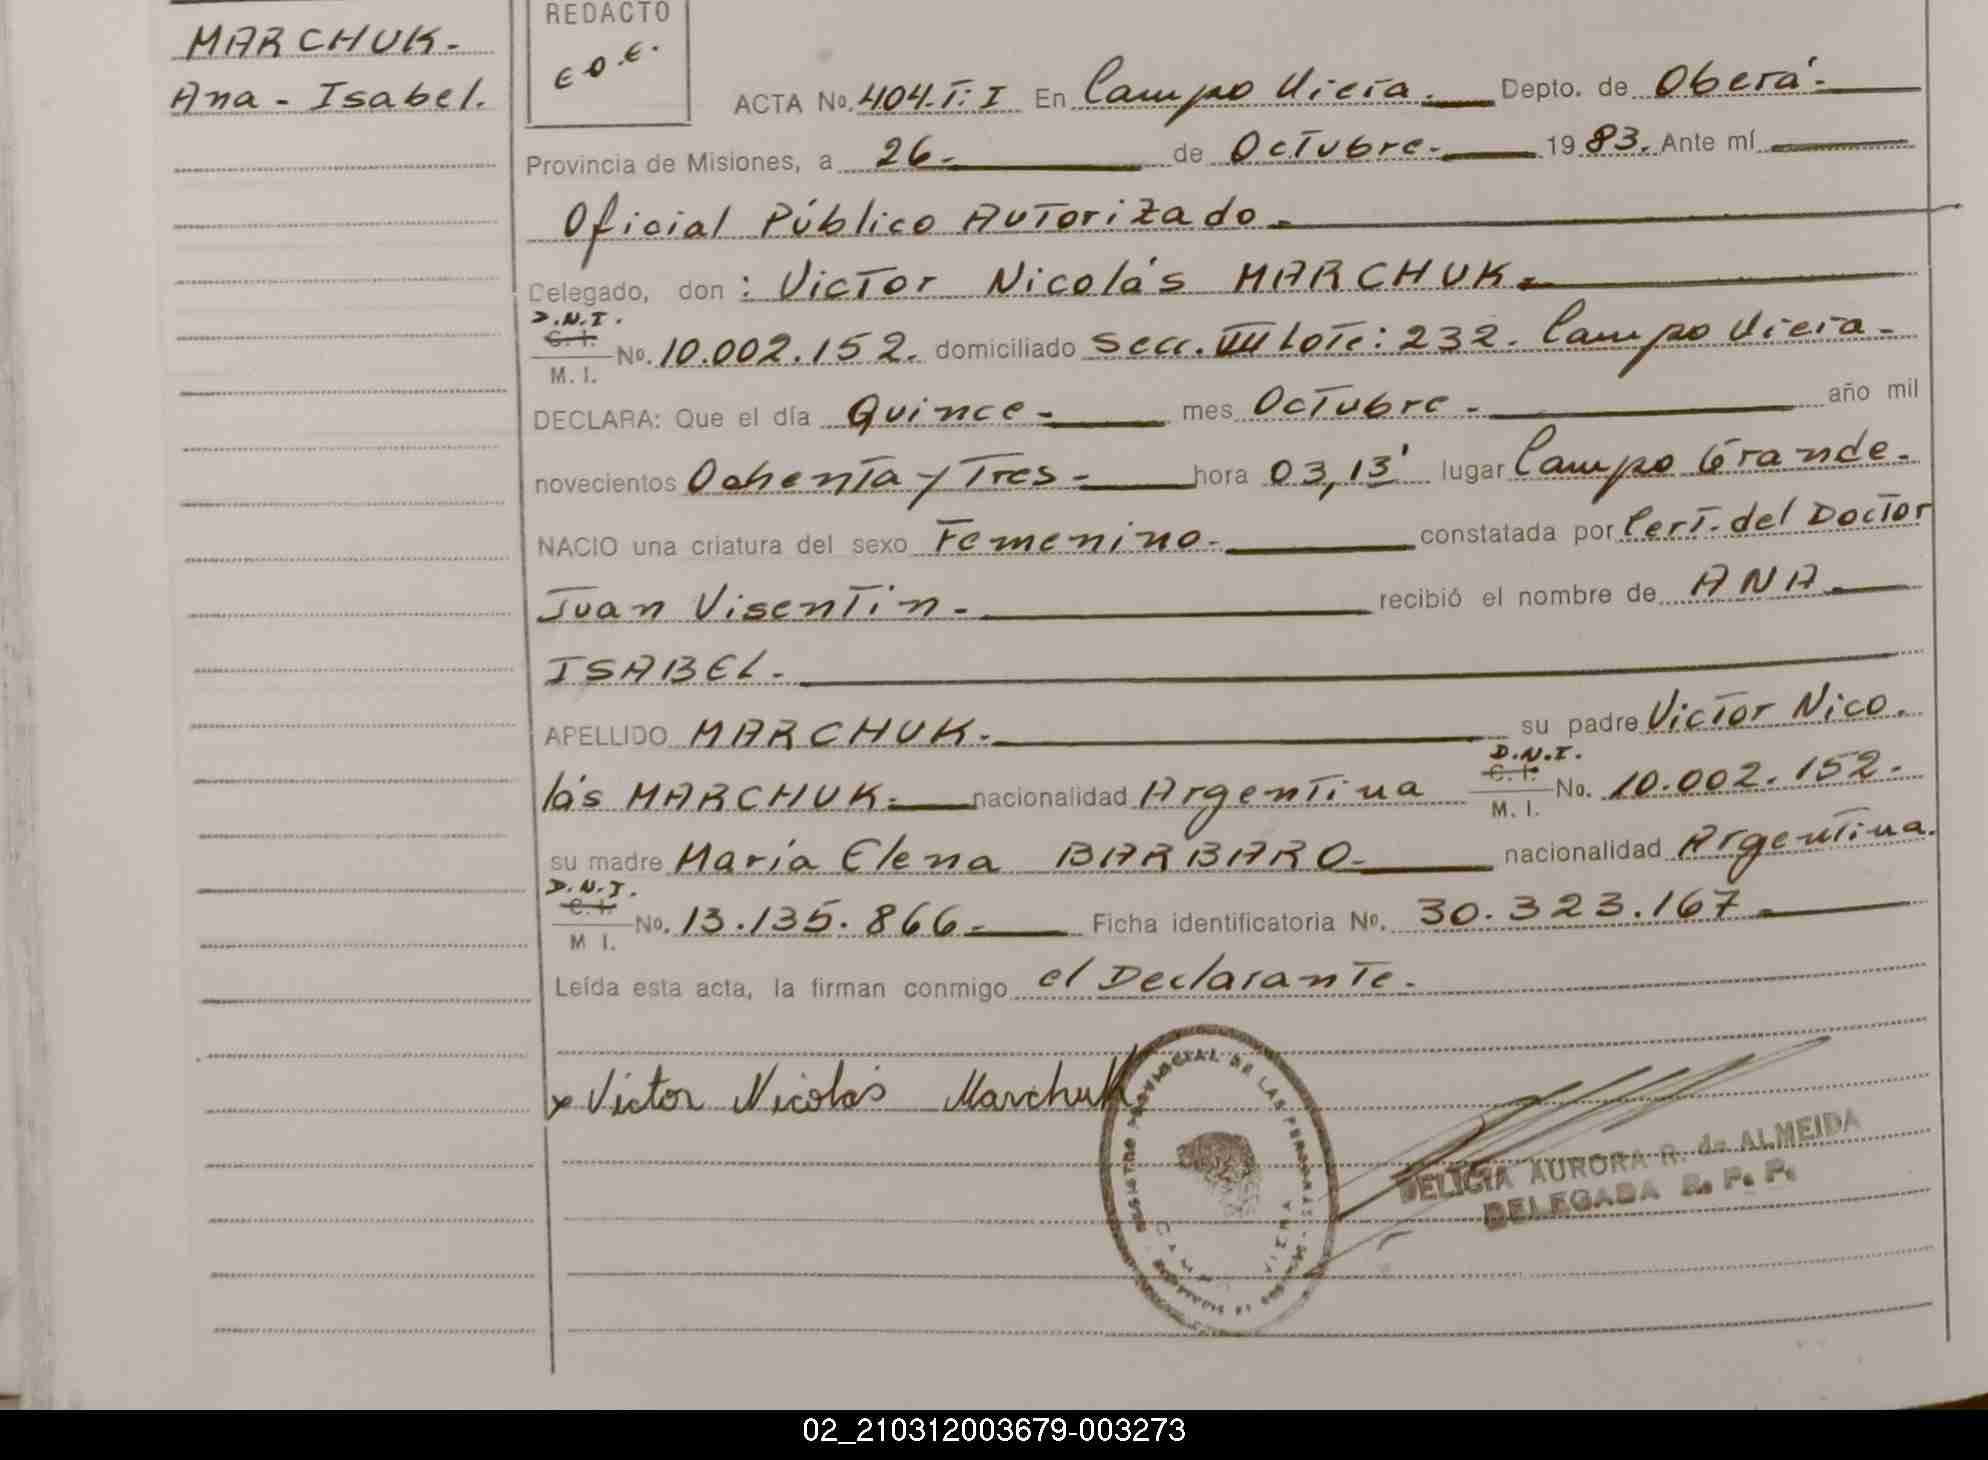 MARCHUK-
Ana - Isabel.
REDACTO
ACTA No. 404.T:I En Campo Viera. Depto. de Oberá-
Provincia de Misiones, a 26- de Octubre- 1983. Ante mí
Oficial Público Autorizado-
Delegado, don : Victor Nicolás MARCHUK-
D.N.I.
C. I.
M. I. No. 10.002.152. domiciliado Secc. VIII Lote: 232. Campo Viera-
DECLARA: Que el día Quince- mes Octubre- año mil
novecientos Ochenta y Tres- hora 03,13' lugar Campo Grande-
NACIO una criatura del sexo Femenino- constatada por Cert. del Doctor
Juan Visentin- recibió el nombre de ANA
ISABEL-
APELLIDO MARCHUK- su padre Victor Nico-
D.N.I.
C. I.
lás MARCHUK- nacionalidad Argentina M. I. No. 10.002.152-
su madre María Elena BARBARO- nacionalidad Argentina.
D.N.I.
C. I.
M I. No. 13.135.866- Ficha identificatoria No. 30.323.167-
Leída esta acta, la firman conmigo el Declarante-
x Victor Nicolás Marchuk
REGISTRO PROVINCIAL DE LAS PERSONAS
VIERA
DELICIA AURORA R. de ALMEIDA
DELEGADA R. P. P.
02_210312003679-003273